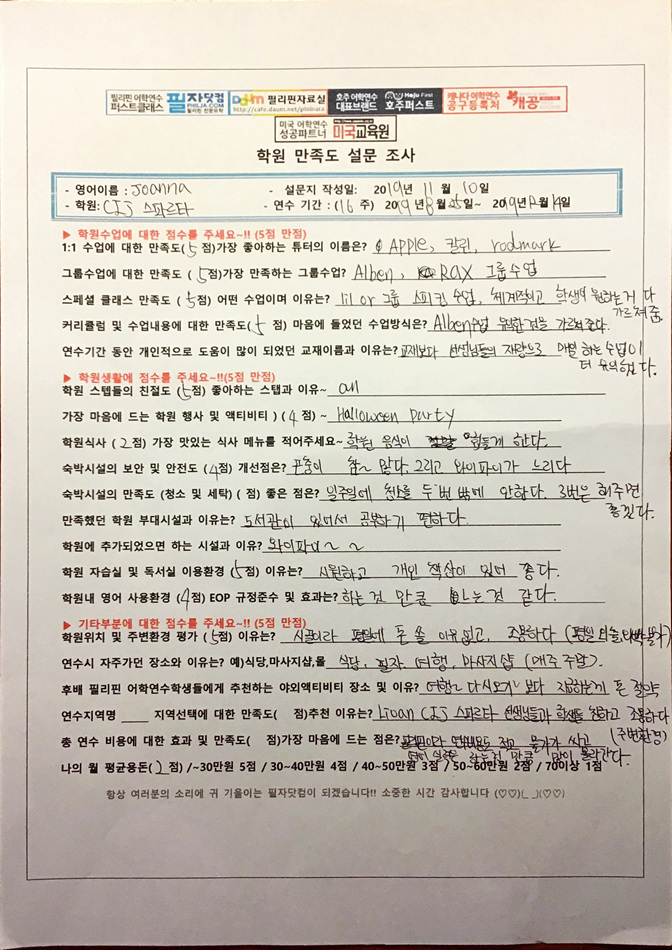 필리핀 어학연수 퍼스트클래스 필자닷컴 PHILJA.COM Daum 필리핀자료실 http://cafe.daum.net/philinara 호주 어학연수 대표브랜드 Hoju First 호주퍼스트 캐나다 어학연수 공구등록처 캐공
미국 어학연수 성공파트너 미국교육원
학원 만족도 설문 조사
- 영어이름 : Joanna - 설문지 작성일: 2019년 11월 10일
- 학원: CIJ 스파르타 - 연수 기간 : (16 주) 2019년 8월 25일~ 2019년 12월 14일
▶ 학원수업에 대한 점수를 주세요~!! (5점 만점)
1:1 수업에 대한 만족도(5 점)가장 좋아하는 튜터의 이름은? Apple, 칼린, rodmark
그룹수업에 대한 만족도 ( 5점)가장 만족하는 그룹수업? Alben, RAX 그룹수업
스페셜 클래스 만족도 ( 5점) 어떤 수업이며 이유는? 1:1 or 그룹 스피킹 수업, 체계적이고 학생이 원하는거 다 가르쳐줌.
커리큘럼 및 수업내용에 대한 만족도(5 점) 마음에 들었던 수업방식은? Alben수업 가르쳐준다.
연수기간 동안 개인적으로 도움이 많이 되었던 교재이름과 이유는? 교재보다 선생님들의 재량으로 매일 하는 수업이 더 유익했다.
▶ 학원생활에 점수를 주세요~!!(5점 만점)
학원 스텝들의 친절도 (5점) 좋아하는 스탭과 이유~ all
가장 마음에 드는 학원 행사 및 액티비티 ) (4점) ~ Halloween party
학원식사 ( 2점) 가장 맛있는 식사 메뉴를 적어주세요~ 학원 음식이 힘들게 한다.
숙박시설의 보안 및 안전도 (4점) 개선점은? 곤충이 참~ 많다. 그리고 와이파이가 느리다
숙박시설의 만족도 (청소 및 세탁) ( 점) 좋은 점은? 일주일에 청소를 두번 밖에 안한다. 3번은 해주면 좋겠다.
만족했던 학원 부대시설과 이유는? 도서관이 있어서 공부하기 편하다.
학원에 추가되었으면 하는 시설과 이유? 와이파이~~
학원 자습실 및 독서실 이용환경 (5점) 이유는? 시원하고 개인 책상이 있어 좋다.
학원내 영어 사용환경 (4점) EOP 규정준수 및 효과는? 하는 것 만큼 느는것 같다.
▶ 기타부분에 대한 점수를 주세요~!! (5점 만점)
학원위치 및 주변환경 평가 (5점) 이유는? 시골이라 평일에 돈 쓸 이유없고, 조용하다
연수시 자주가던 장소와 이유는? 예)식당,마사지샵,몰 식당, 필자 여행, 마사지샵 (매주 주말).
후배 필리핀 어학연수학생들에게 추천하는 야외액티비티 장소 및 이유? 여행~ 보다 돈 절약
연수지역명 ____ 지역선택에 대한 만족도( 점)추천 이유는? Liloan CIJ 스파르타 선생님들과 학생들 착하고 조용하다 (주변환경)
총 연수 비용에 대한 효과 및 만족도( 점)가장 마음에 드는 점은? 연수비용도 적고 물가가 싸고 하는것 만큼 많이 올라간다.
나의 월 평균용돈(2 점) /~30만원 5점 / 30~40만원 4점 / 40~50만원 3점 / 50~60만원 2점 / 70이상 1점
항상 여러분의 소리에 귀 기울이는 필자닷컴이 되겠습니다!! 소중한 시간 감사합니다 (♡♡)(_ _)(♡♡)